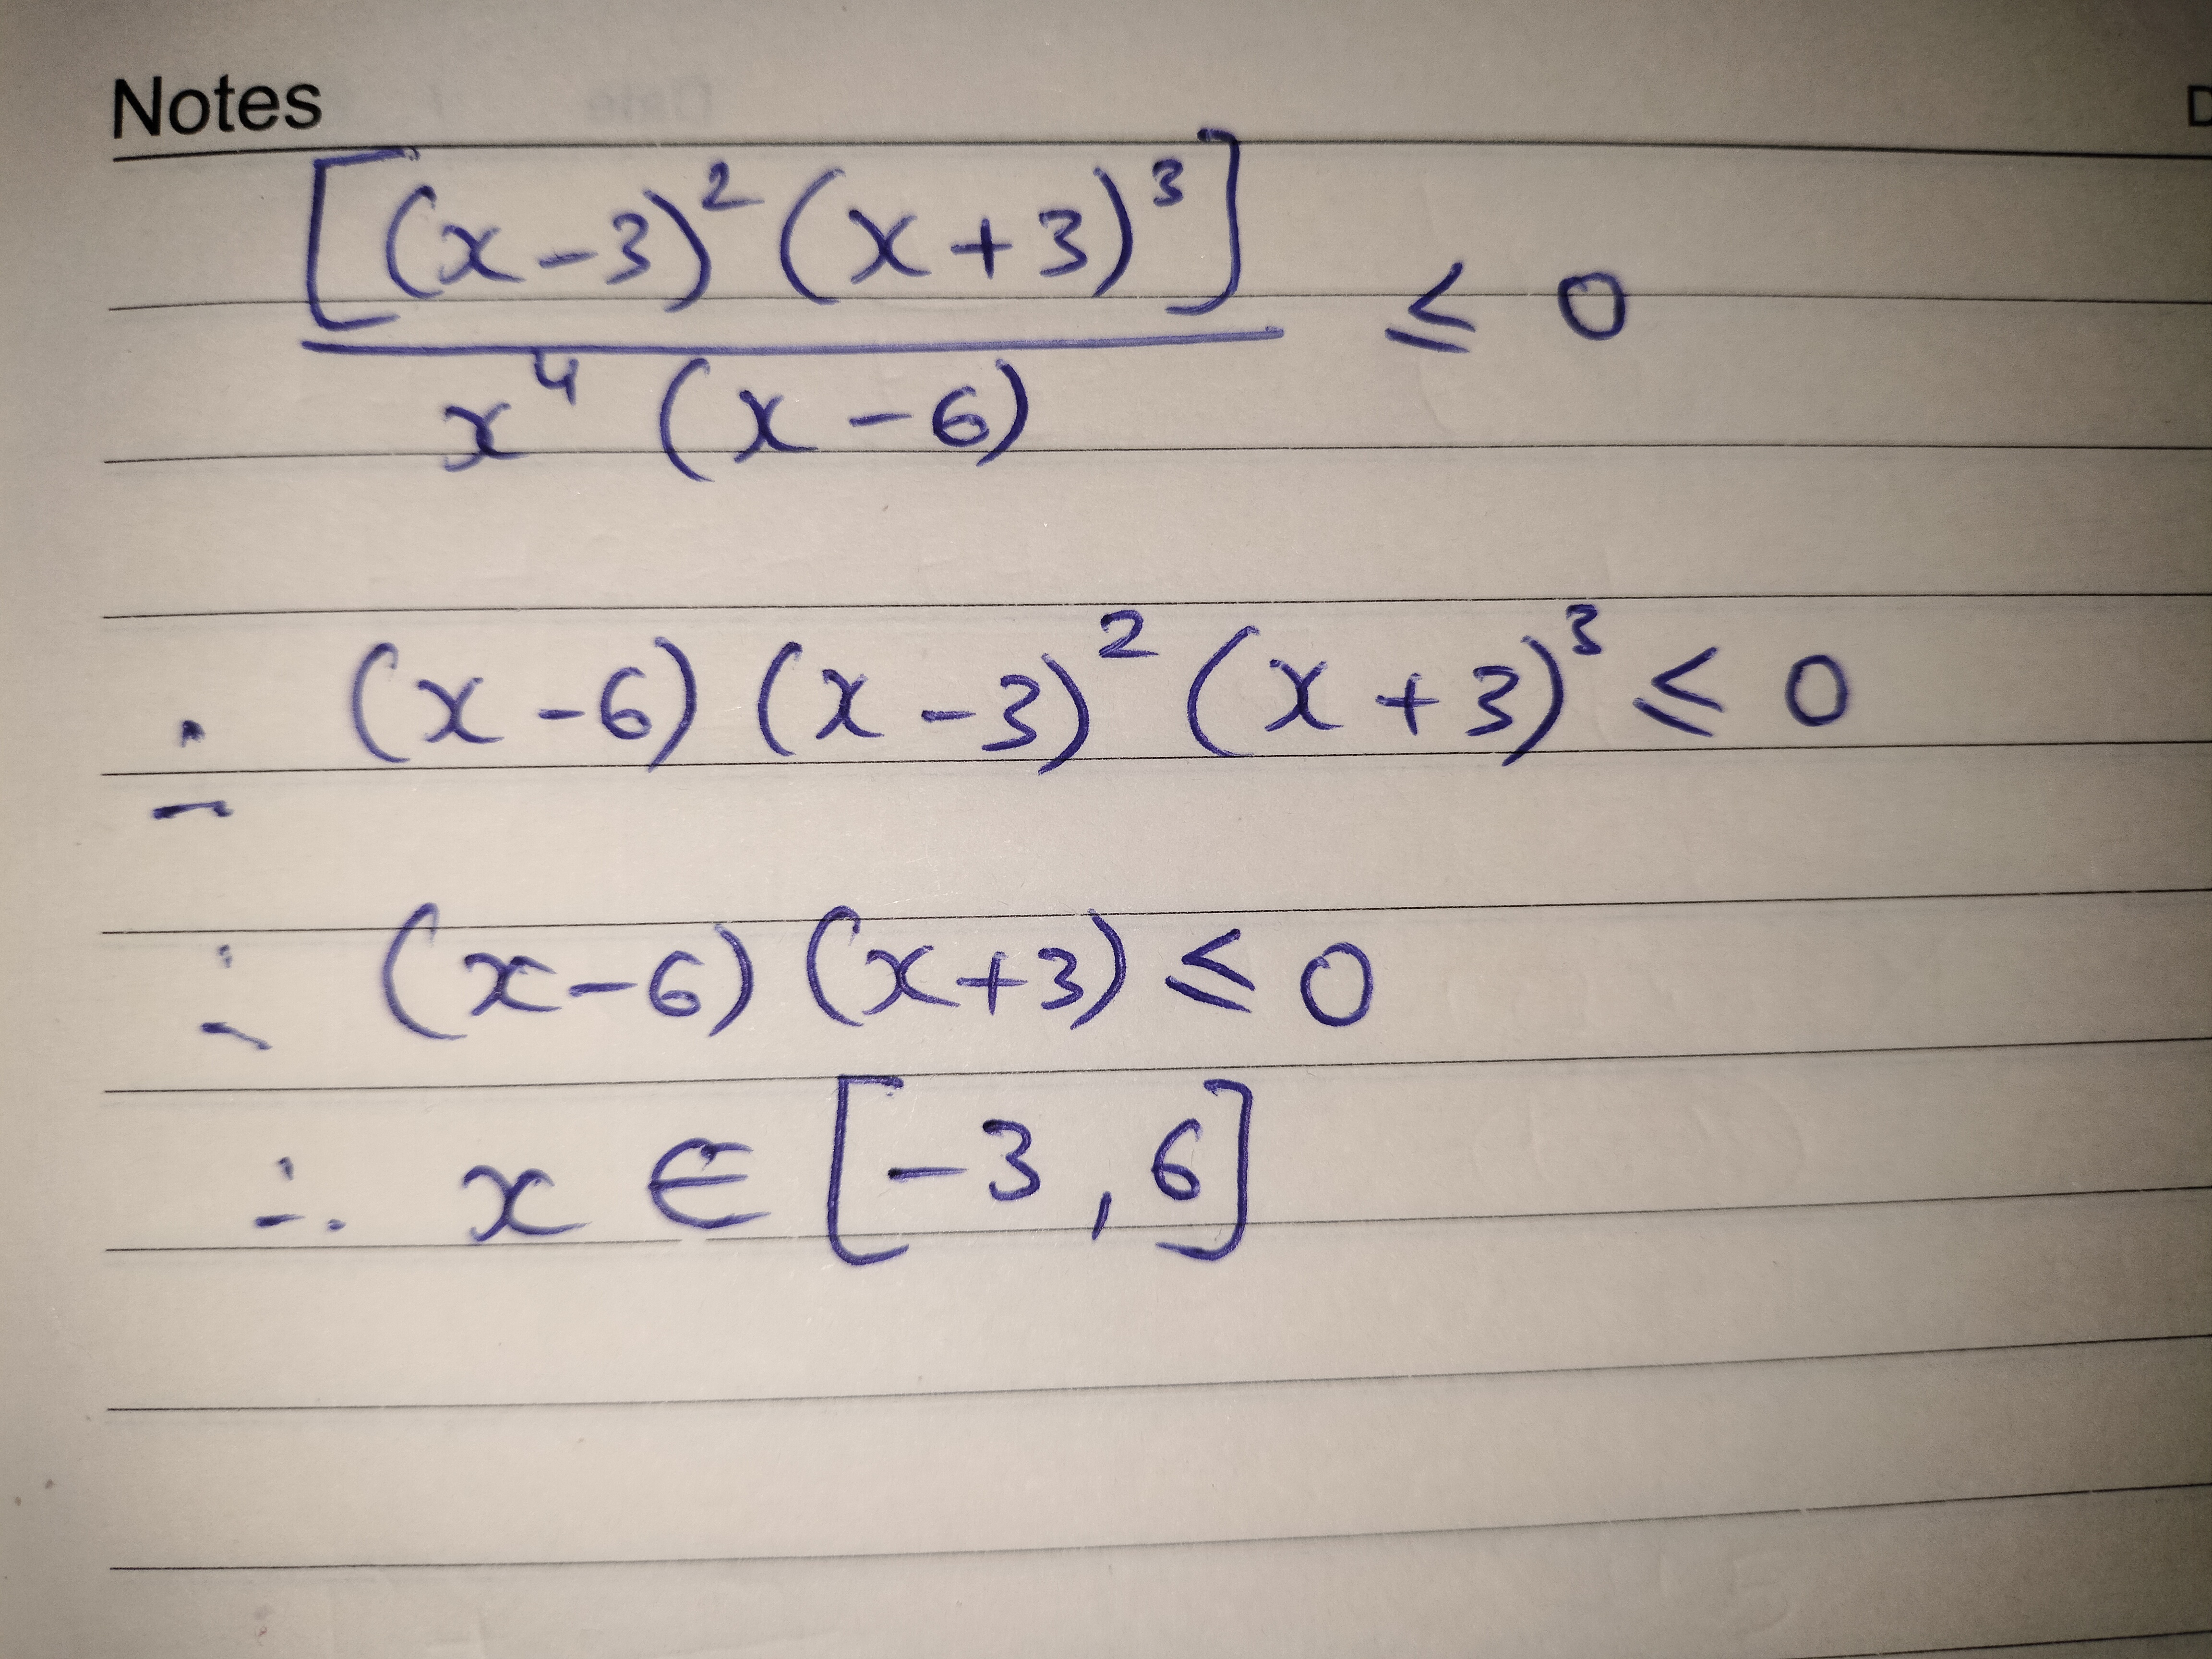 Notes
[(x-3)²(x+3)³] / x⁴(x-6) ≤ 0
∴ (x-6)(x-3)²(x+3)³ ≤ 0
∴ (x-6)(x+3) ≤ 0
∴ x ∈ [-3, 6]